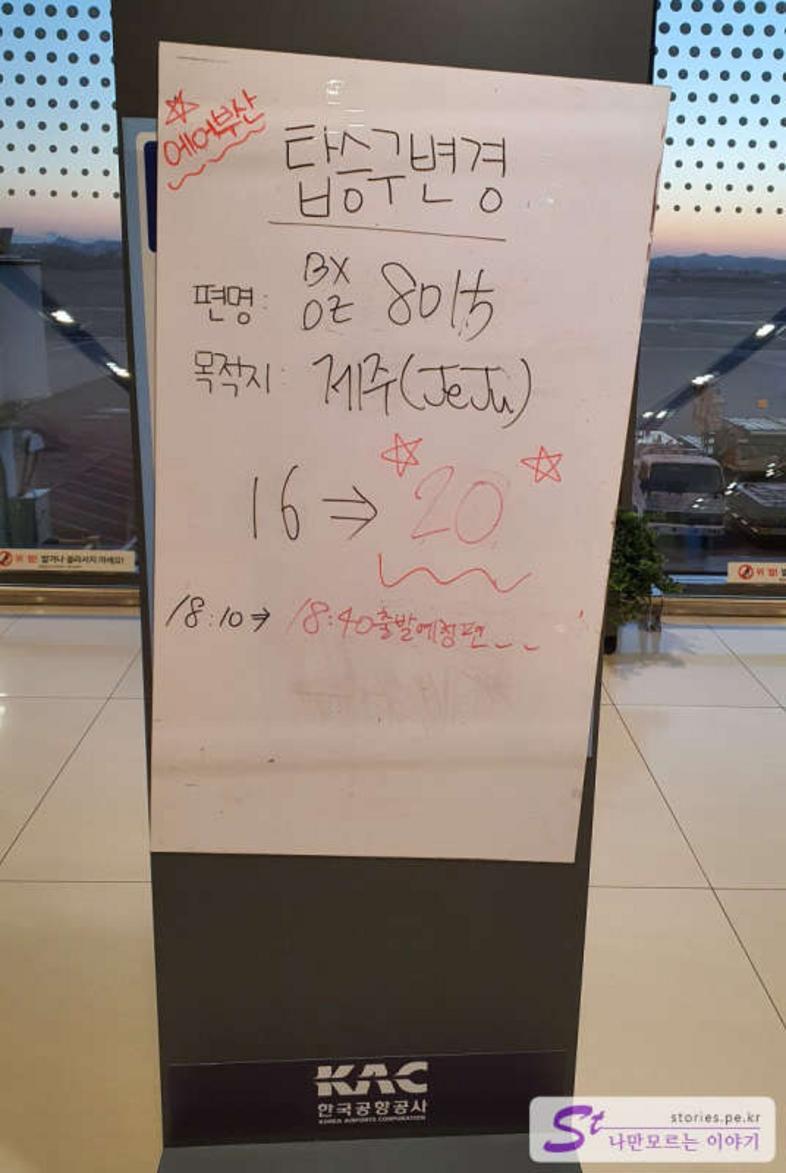 에어부산
탑승구변경
편명: BX OZ 8015
목적지: 제주(JeJu)
16 ⇒ 20
18:10⇒ 18:40출발예정편
위험! 밟거나 올라서지 마세요!
위험!
KAC
한국공항공사
KOREA AIRPORTS CORPORATION
St
stories.pe.kr
나만모르는 이야기